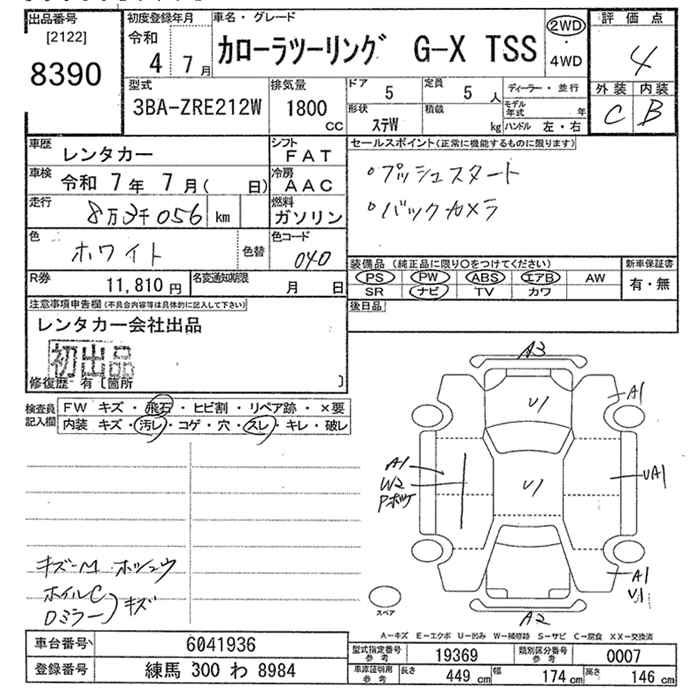 出品番号 初度登録年月 車名・グレード 評価点
[2122] 令和 2WD
8390 4年 7月 カローラツーリング G-X TSS ・ 4WD 4
型式 排気量 ドア 5 定員 5人 ディーラー・並行 外装 内装
3BA-ZRE212W 1800CC 形状 ステW 積載 kg モデル年式 年 C B
ハンドル 左・右
車歴 レンタカー シフト FAT セールスポイント(正常に機能するものに限ります)
車検 令和 7年 7月( 日) 冷房 AAC ・プッシュスタート
走行 8万 056 km 燃料 ガソリン ・バックカメラ
色 ホワイト 色替 色コード 040
R券 11,810円 名変通知期限 月 日
装備品(純正品に限り○をつけてください) 新車保証書
PS PW ABS エアB AW 有・無
SR ナビ TV カワ
後日品
注意事項申告欄(不具合内容等は具体的に記入して下さい)
レンタカー会社出品
初出品
修復歴 有〔箇所 〕
検査員 FW キズ・飛石・ヒビ割・リペア跡・×要
記入欄 内装 キズ・汚レ・コゲ・穴・スレ・キレ・破レ
A3
U1
A1
A1
W2
P.ボッケ
U1
UA1
A1
U1
A2
キズ-M ホシュウ
ホイルC
Dミラー キズ
スペア
A-キズ E-エクボ U-凹み W-補修跡 S-サビ C-腐食 XX-交換済
車台番号 6041936 型式指定番号 参考 19369 類別区分番号 参考 0007
登録番号 練馬 300 わ 8984 車庫証明用 参考 長さ 449cm 幅 174cm 高さ 146cm